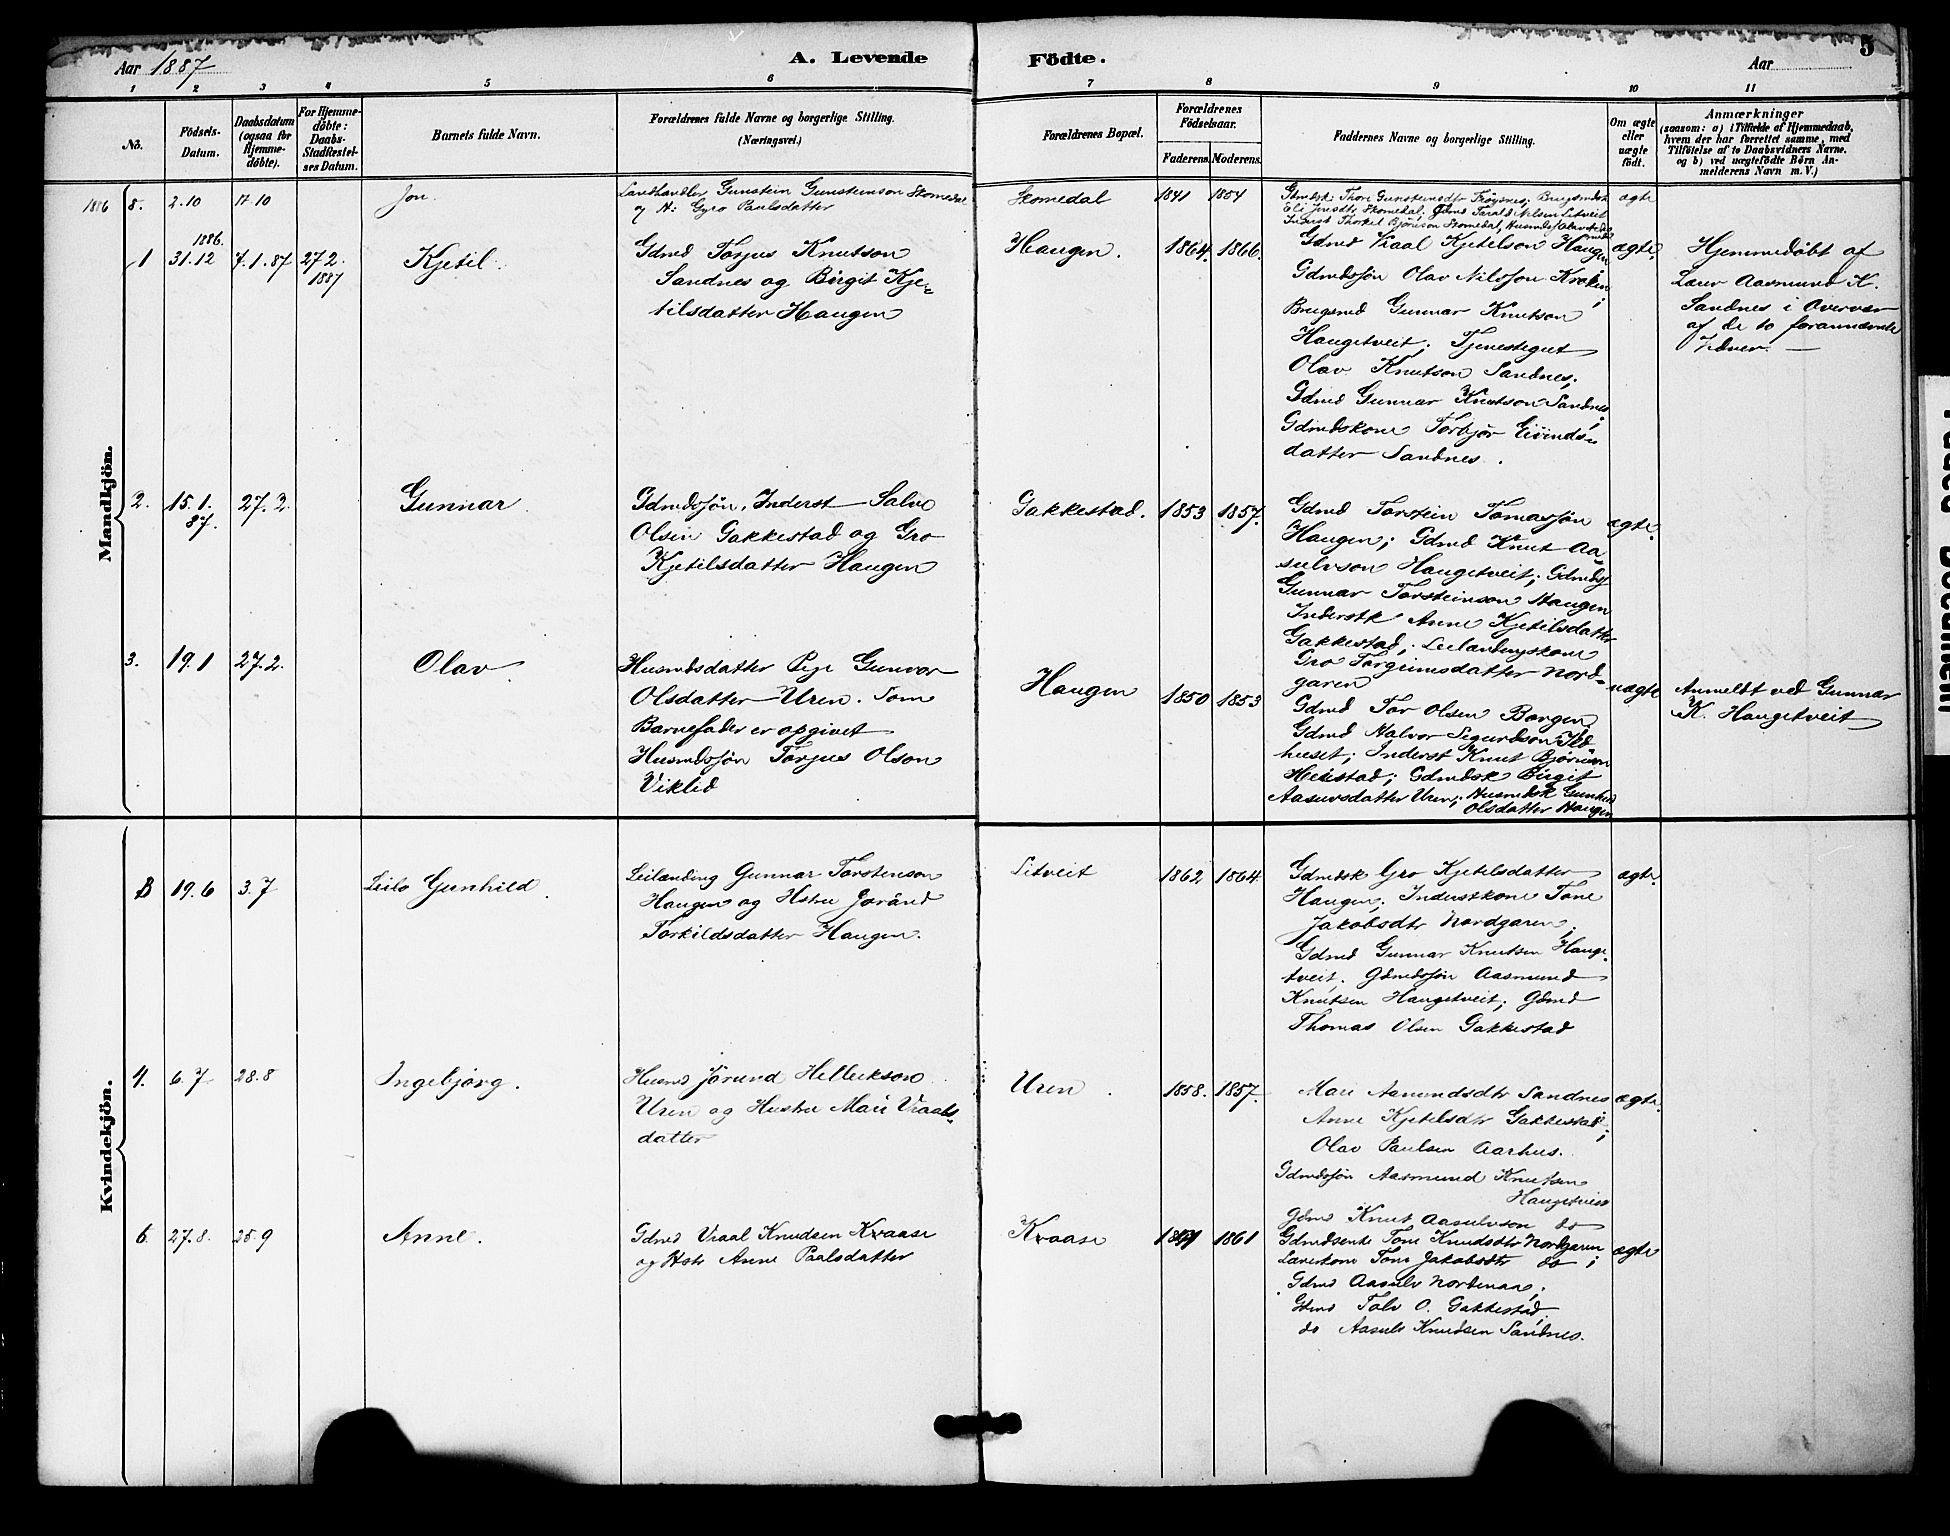 Aar 1887
A. Levende
Födte.
Aar
5
1 2 3 4 5 6 7 8 9 10 11
No.
Födsels-
Datum.
Daabsdatum
(ogsaa for
Hjemme-
döbte).
For Hjemme-
döbte:
Daabs-
Stadfæstel-
ses Datum.
Barnets fulde Navn.
Forældrenes fulde Navne og borgerlige Stilling.
(Næringsvei.)
Forældrenes Bopæl.
Forældrenes
Födselsaar.
Faderens. Moderens.
Faddernes Navne og borgerlige Stilling.
Om ægte
eller
uægte
födt.
Anmærkninger
(saasom: a) i Tilfælde af Hjemmedaab,
hvem der har forrettet samme, med
Tilföielse af to Daabsvidners Navne.
og b) ved uægtefödte Börn An-
melderens Navn m. V.)
Mandkjön.
1886 8. 2.10 17.10
Jon.
Landhandler Gunstein Gunsteinson Skomedal
og H: Gyro Paulsdatter
Skomedal 1841 1854
Gdmdsk: Thore Gunsteinsdtr Frøysnes;
Skomedal; Gdmd Tarald Nilsen Litveit
Inderst Thorkel Bjørnson Skomedal,
ægte
1 1886. 31.12 7.1.87 27.2 1887
Kjetil.
Gdmd Torjus Knutson
Sandnes og Birgit Kje-
tilsdatter Haugen
Haugen. 1864. 1866.
Gdmd Vraal Kjetelson Haugen
Gdmdssøn Olav Nilssøn Kroken;
Brugsmd Gunnar Knutson
Haugetveit; Tjenestegut
Olav Knutson Sandnes;
Gdmd Gunnar Knutson Sandnes;
Gdmdskone Torbjør Eivinds-
datter Sandnes.
ægte.
Hjemmedøbt af
Lærer Aasmund K.
Sandnes i Overvær
af de to forannævnte
Vidner. —
2. 15.1.87. 27.2.
Gunnar
Gdmdssøn, Inderst Salve
Olsen Gakkestad og Gro
Kjetilsdatter Haugen
Gakkestad. 1853 1857.
Gdmd Torstein Tomassøn
Haugen; Gdmd Knut Aa-
sulvson Haugetveit; Gdmds
Gunnar Torsteinson Haugen
Inderstk Anne Kjetilsdatter
Gakkestad; Leilændingskone
Gro Torgrimsdatter Nord-
garen
ægte.
3. 19.1 27.2.
Olav
Husmdsdatter Pige Gunvor
Olsdatter Uren. Som
Barnefader er opgivet
Husmdssøn Torjus Olson
Viklid
Haugen 1850 1853
Gdmd Tor Olsen Borgen
Gdmd Halvor Sigurdson
huset; Inderst Knut Bjørnson
Heistad; Gdmdsk Birgit
Aasulvsdatter Uren; Husmdsk Gunhild
Olsdatter Haugen
uægte
Anmeldt ved Gunnar
K. Haugetveit
Kvindekjön.
19.6 3.7
Gunhild.
Leilænding Gunnar Torstenson
Haugen og Hstru Jorånd
Torkildsdatter Haugen.
Litveit 1862 1864
Gdmdsk Gro Kjetelsdatter
Haugen; Inderstkone Tone
Jakobsdtr Nordgaren;
Gdmd Gunnar Knutsen Hauge-
tveit. Gdmdssøn Aasmund
Knutsen Haugetveit; Gdmd
Thomas Olsen Gakkestad
ægte.
4. 6.7 28.8
Ingebjørg.
Husmd Jørund Hellekson
Uren og Hustru Mari Vraals-
datter
Uren. 1858. 1857.
Mari Aamundsdtr Sandnes
Anne Kjetelsdtr Gakkestad;
Olav Paulsen Aarhus.
Gdmdssøn Aasmund Knutsen
Haugetveit
ægte.
6. 27.8. 25.9
Anne.
Gdmd Vraal Knudsen Kvaase
og Hstr Anne Paalsdatter
Kvaase 1861
Gdmd Knut Aasulvson do
Gdmdsenke Tone Knudsdtr Nordgaren
Lærerkone Tone Jakobsdtr do;
Gdmd Aasulv Nordenaa;
Gdmd Talv O. Gakkestad,
do Aasulv Knudsen Sandnes.
ægte